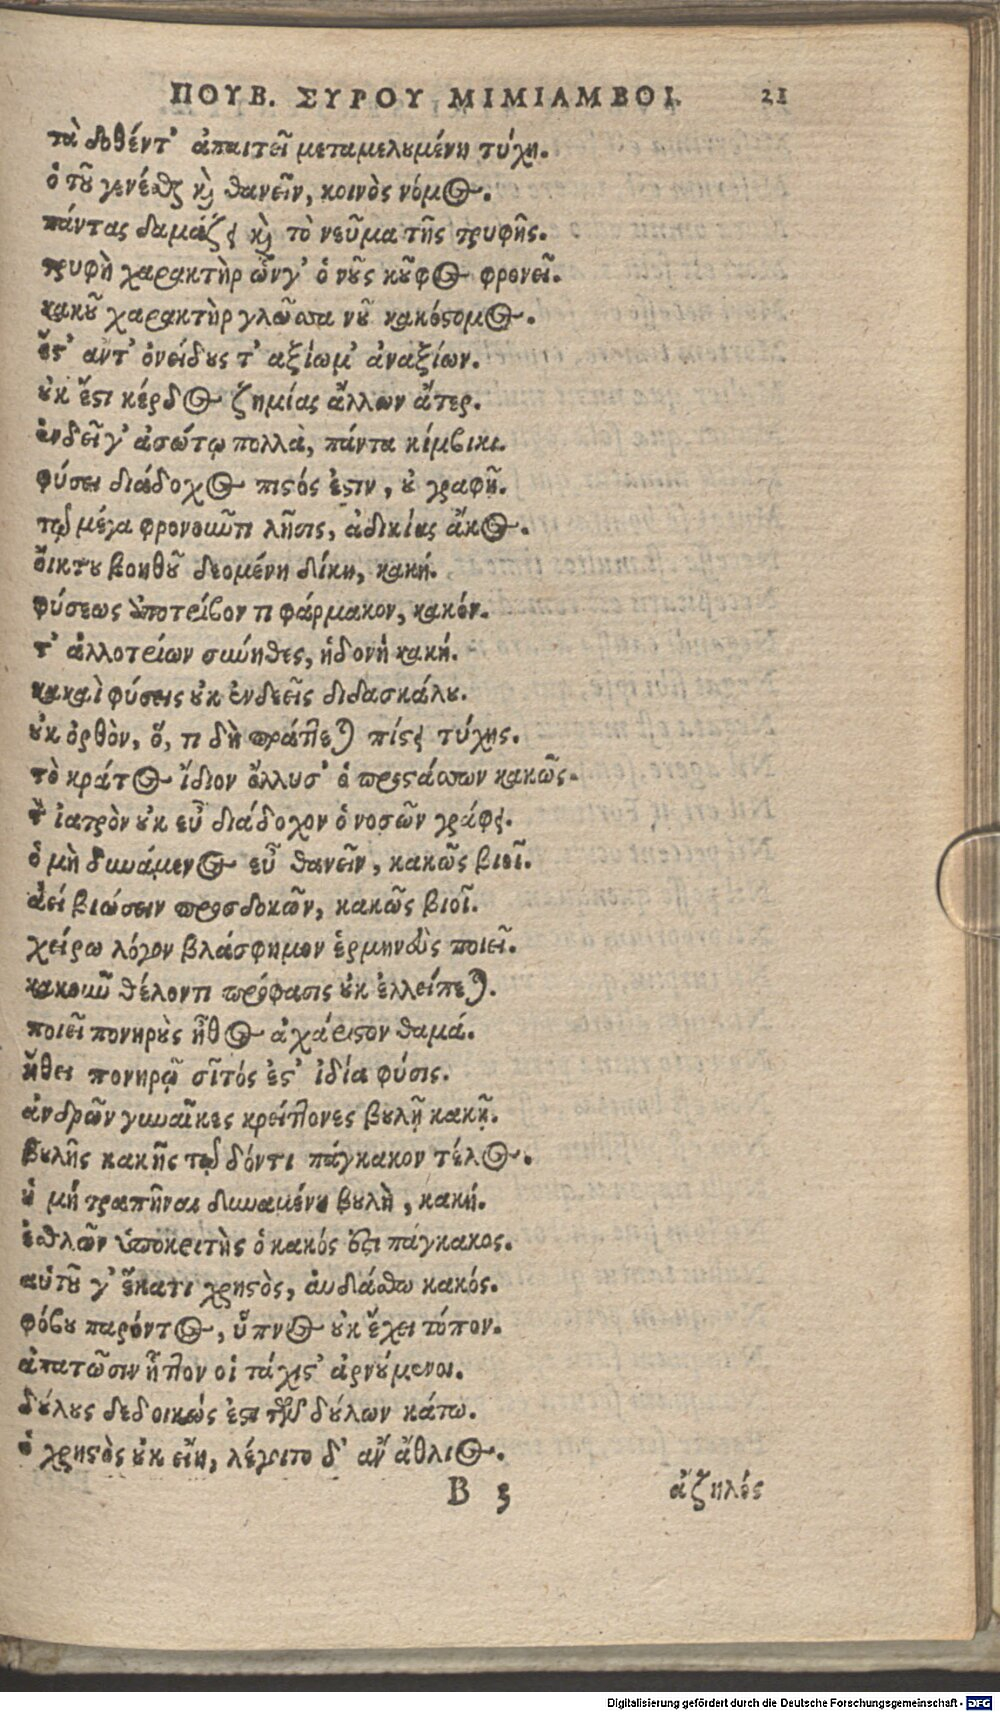 ΠΟΥΒ. ΣΥΡΟΥ ΜΙΜΙΑΜΒΟΙ. 21
τὰ δοθέντ' ἀπαιτεῖ μεταμελουμένη τύχη.
ὁ τοῦ γενέσθαι καὶ θανεῖν, κοινὸς νόμος.
πάντας δαμάζει καὶ τὸ νεῦμα τῆς τρυφῆς.
τρυφὴ χαρακτὴρ ὧνγ' ὁ νοῦς κοῦφος φρονεῖ.
κακοῦ χαρακτὴρ γλῶσσα νοῦ κακόστομος.
ἔστ' ἀντ' ὀνείδους τ' ἀξίωμ' ἀναξίων.
οὐκ ἔστι κέρδος ζημίας ἄλλων ἄτερ.
ἐνδεῖ γ' ἀσώτῳ πολλὰ, πάντα κίμβικι.
φύσει διάδοχος πιστός ἐστιν, οὐ γραφῇ.
τῷ μέγα φρονοῦντι λῆσις, ἀδικίας ἄκος.
οἴκτου βοηθοῦ δεομένη δίκη, κακή.
φύσεως ὑποτρίβον τι φάρμακον, κακόν.
τ' ἀλλοτρίων συνήθες, ἡδονὴ κακή.
κακαὶ φύσεις οὐκ ἐνδεεῖς διδασκάλου.
οὐκ ὀρθὸν, ὅ, τι δὴ πράττεται πίστει τύχης.
τὸ κράτος ἴδιον ὄλλυσ' ὁ προστάσσων κακῶς.
τὸν ἰατρὸν οὐκ εὖ διάδοχον ὁ νοσῶν γράφει.
ὁ μὴ δυνάμενος εὖ θανεῖν, κακῶς βιοῖ.
ἀεί βιώσειν προσδοκῶν, κακῶς βιοῖ.
χείρω λόγον βλάσφημον ἑρμηνεὺς ποιεῖ.
κακουῦ θέλοντι πρόφασις οὐκ ἐλλείπεται.
ποιεῖ πονηροὺς ἦθος ἀχάριστον θαμά.
ἤθει πονηρῷ σῖτός ἐστ' ἰδία φύσις.
ἀνδρῶν γυναῖκες κρείττονες βουλῇ κακῇ.
βουλῆς κακῆς τῷ δόντι πάγκακον τέλος.
ἡ μή τραπῆναι δυναμένη βουλὴ, κακή.
ἐσθλῶν ὑποκριτὴς ὁ κακός ἐστι πάγκακος.
αὑτοῦ γ' ἕκατι χρηστὸς, αὐδάσθω κακός.
φόβου παρόντος, ὕπνος οὐκ ἔχει τόπον.
ἀπατῶσιν ἧττον οἱ τάχιστ' ἀρνούμενοι.
δούλους δεδοικώς ἐστι τῶν δούλων κάτω.
ὁ χρηστὸς οὐκ εἴη, λέγοιτο δ' ἂν ἄθλιος.
B 3 ἀζηλός